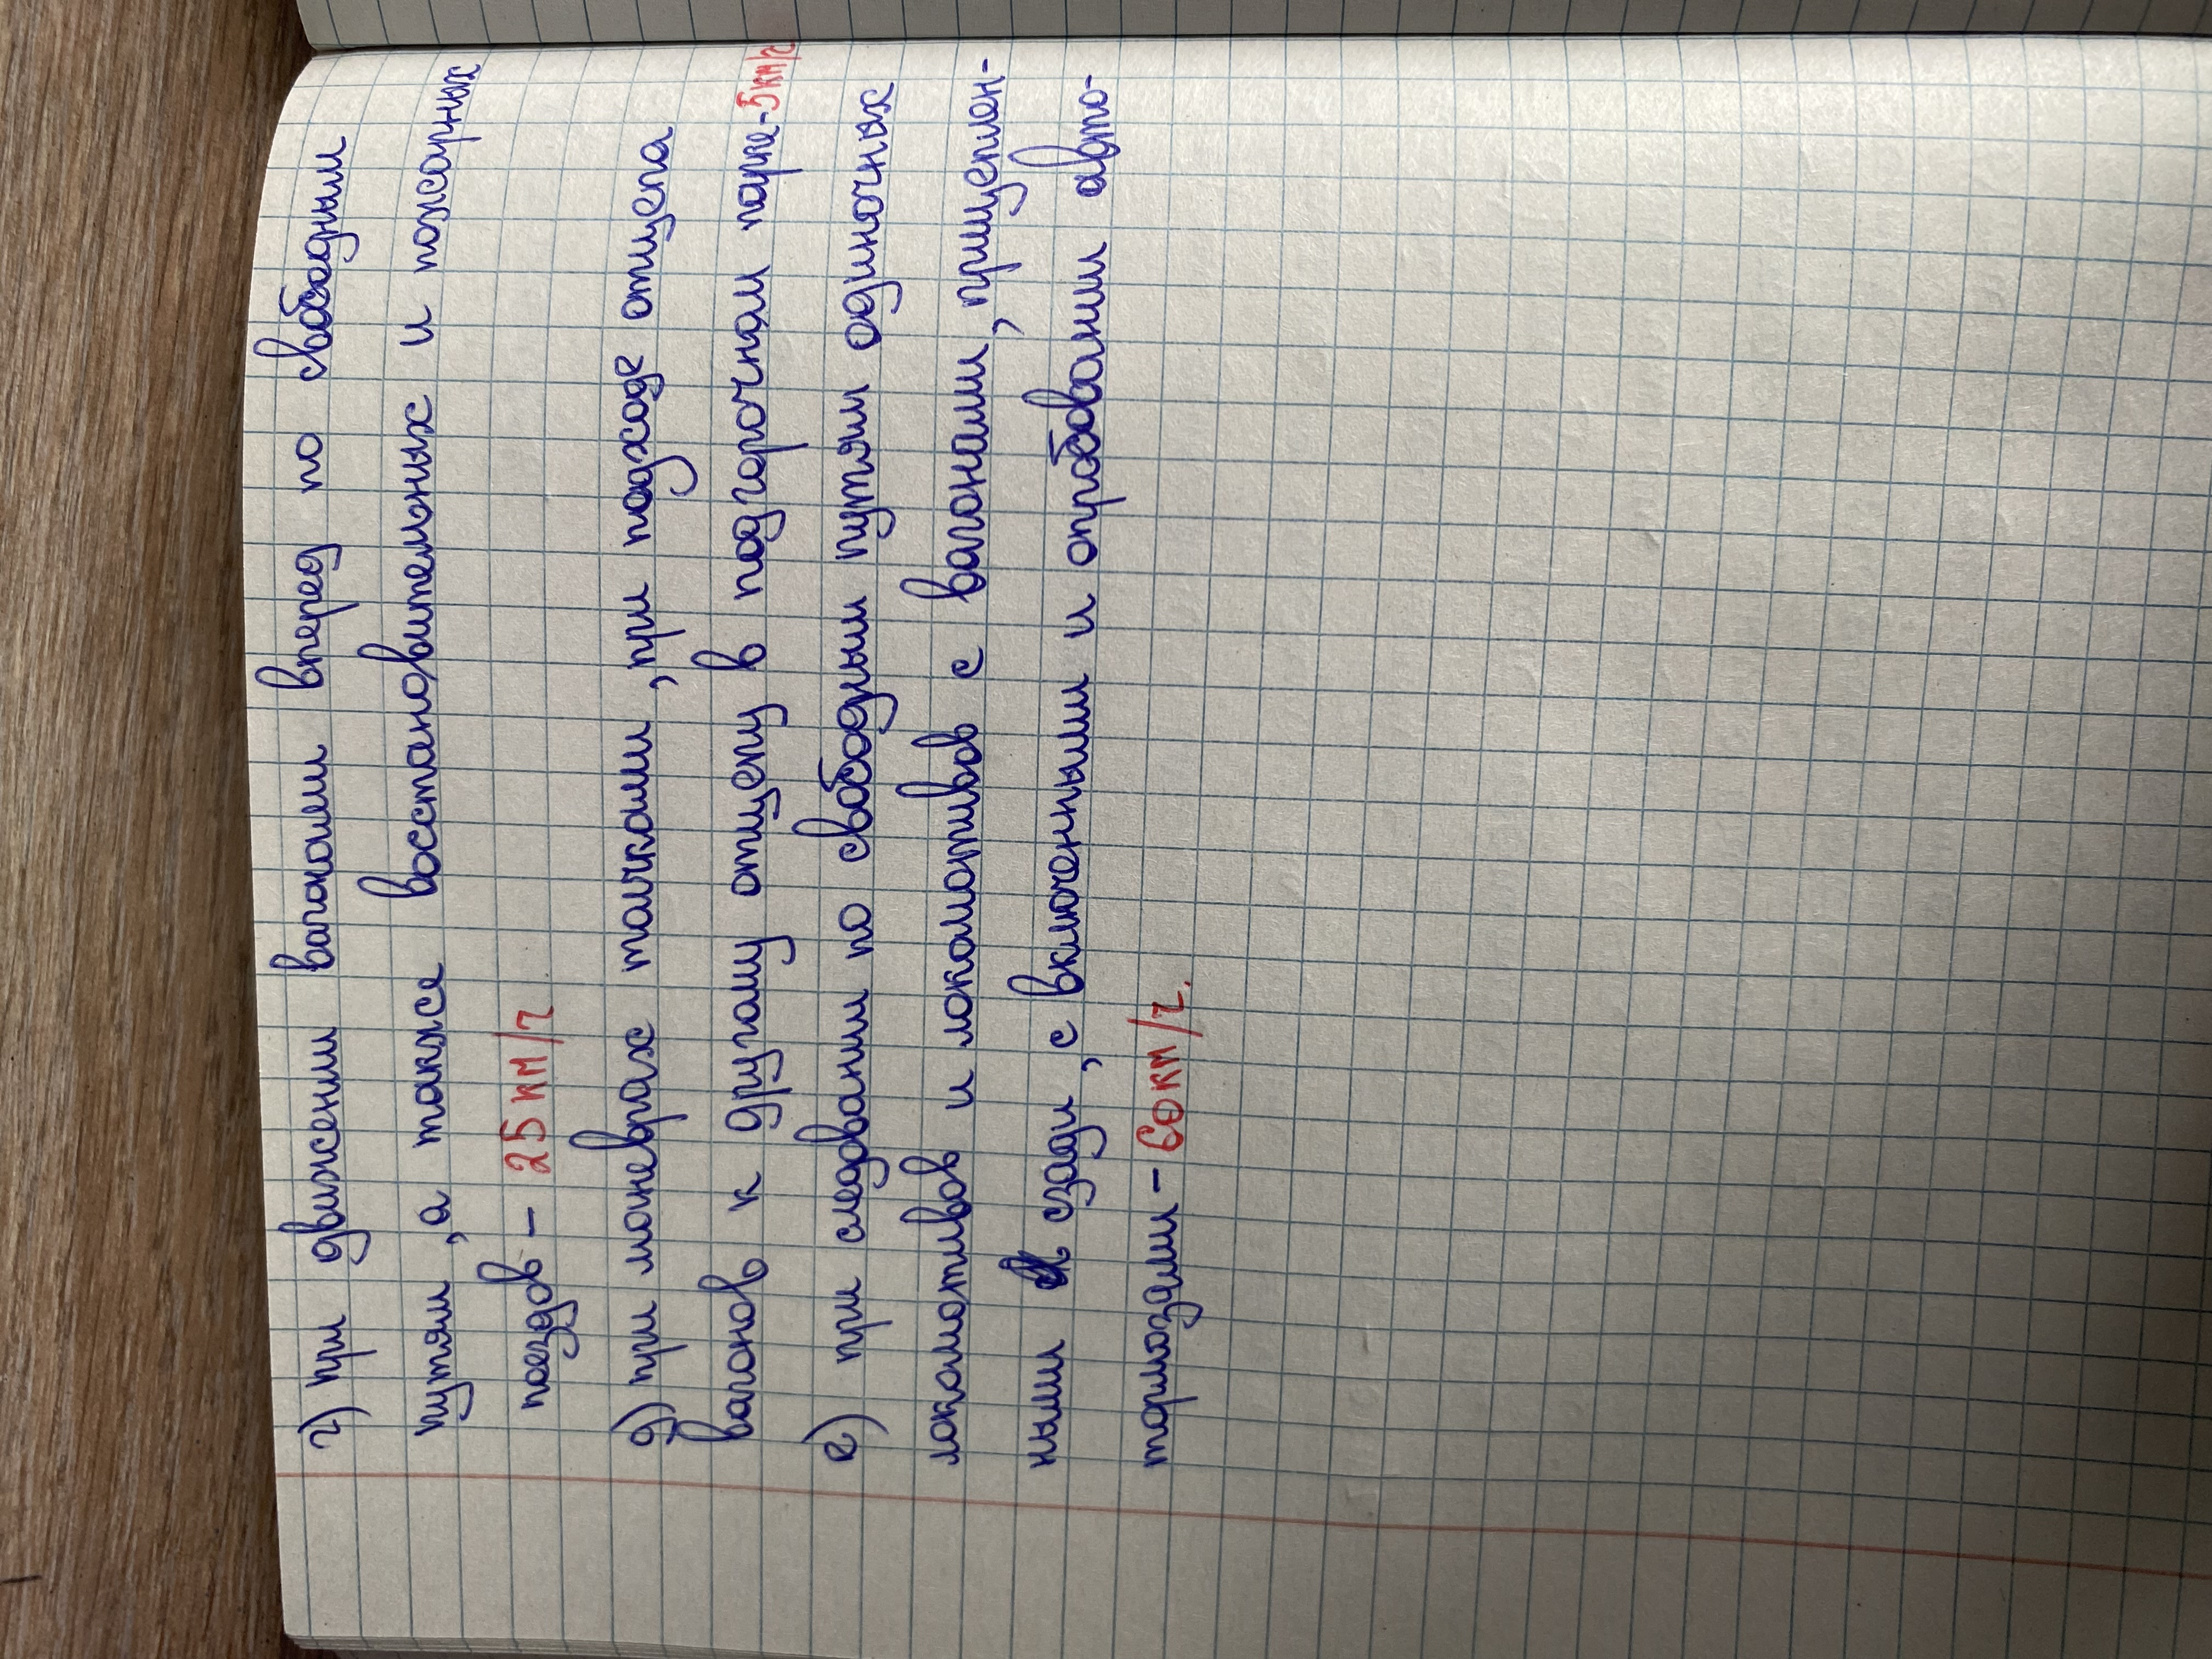 г) при движении вагонами вперед по свободным
путям, а также восстановительных и пожарных
поездов – 25 км/г
д) при маневрах толчками, при подходе отцепа
вагонов к другому отцепу в подгорочном парке-5км/г
е) при следовании по свободным путям одиночных
локомотивов и локомотивов с вагонами, прицеплен-
ными сзади, с включенными и опробоваными авто-
тормозами – 60км/г.